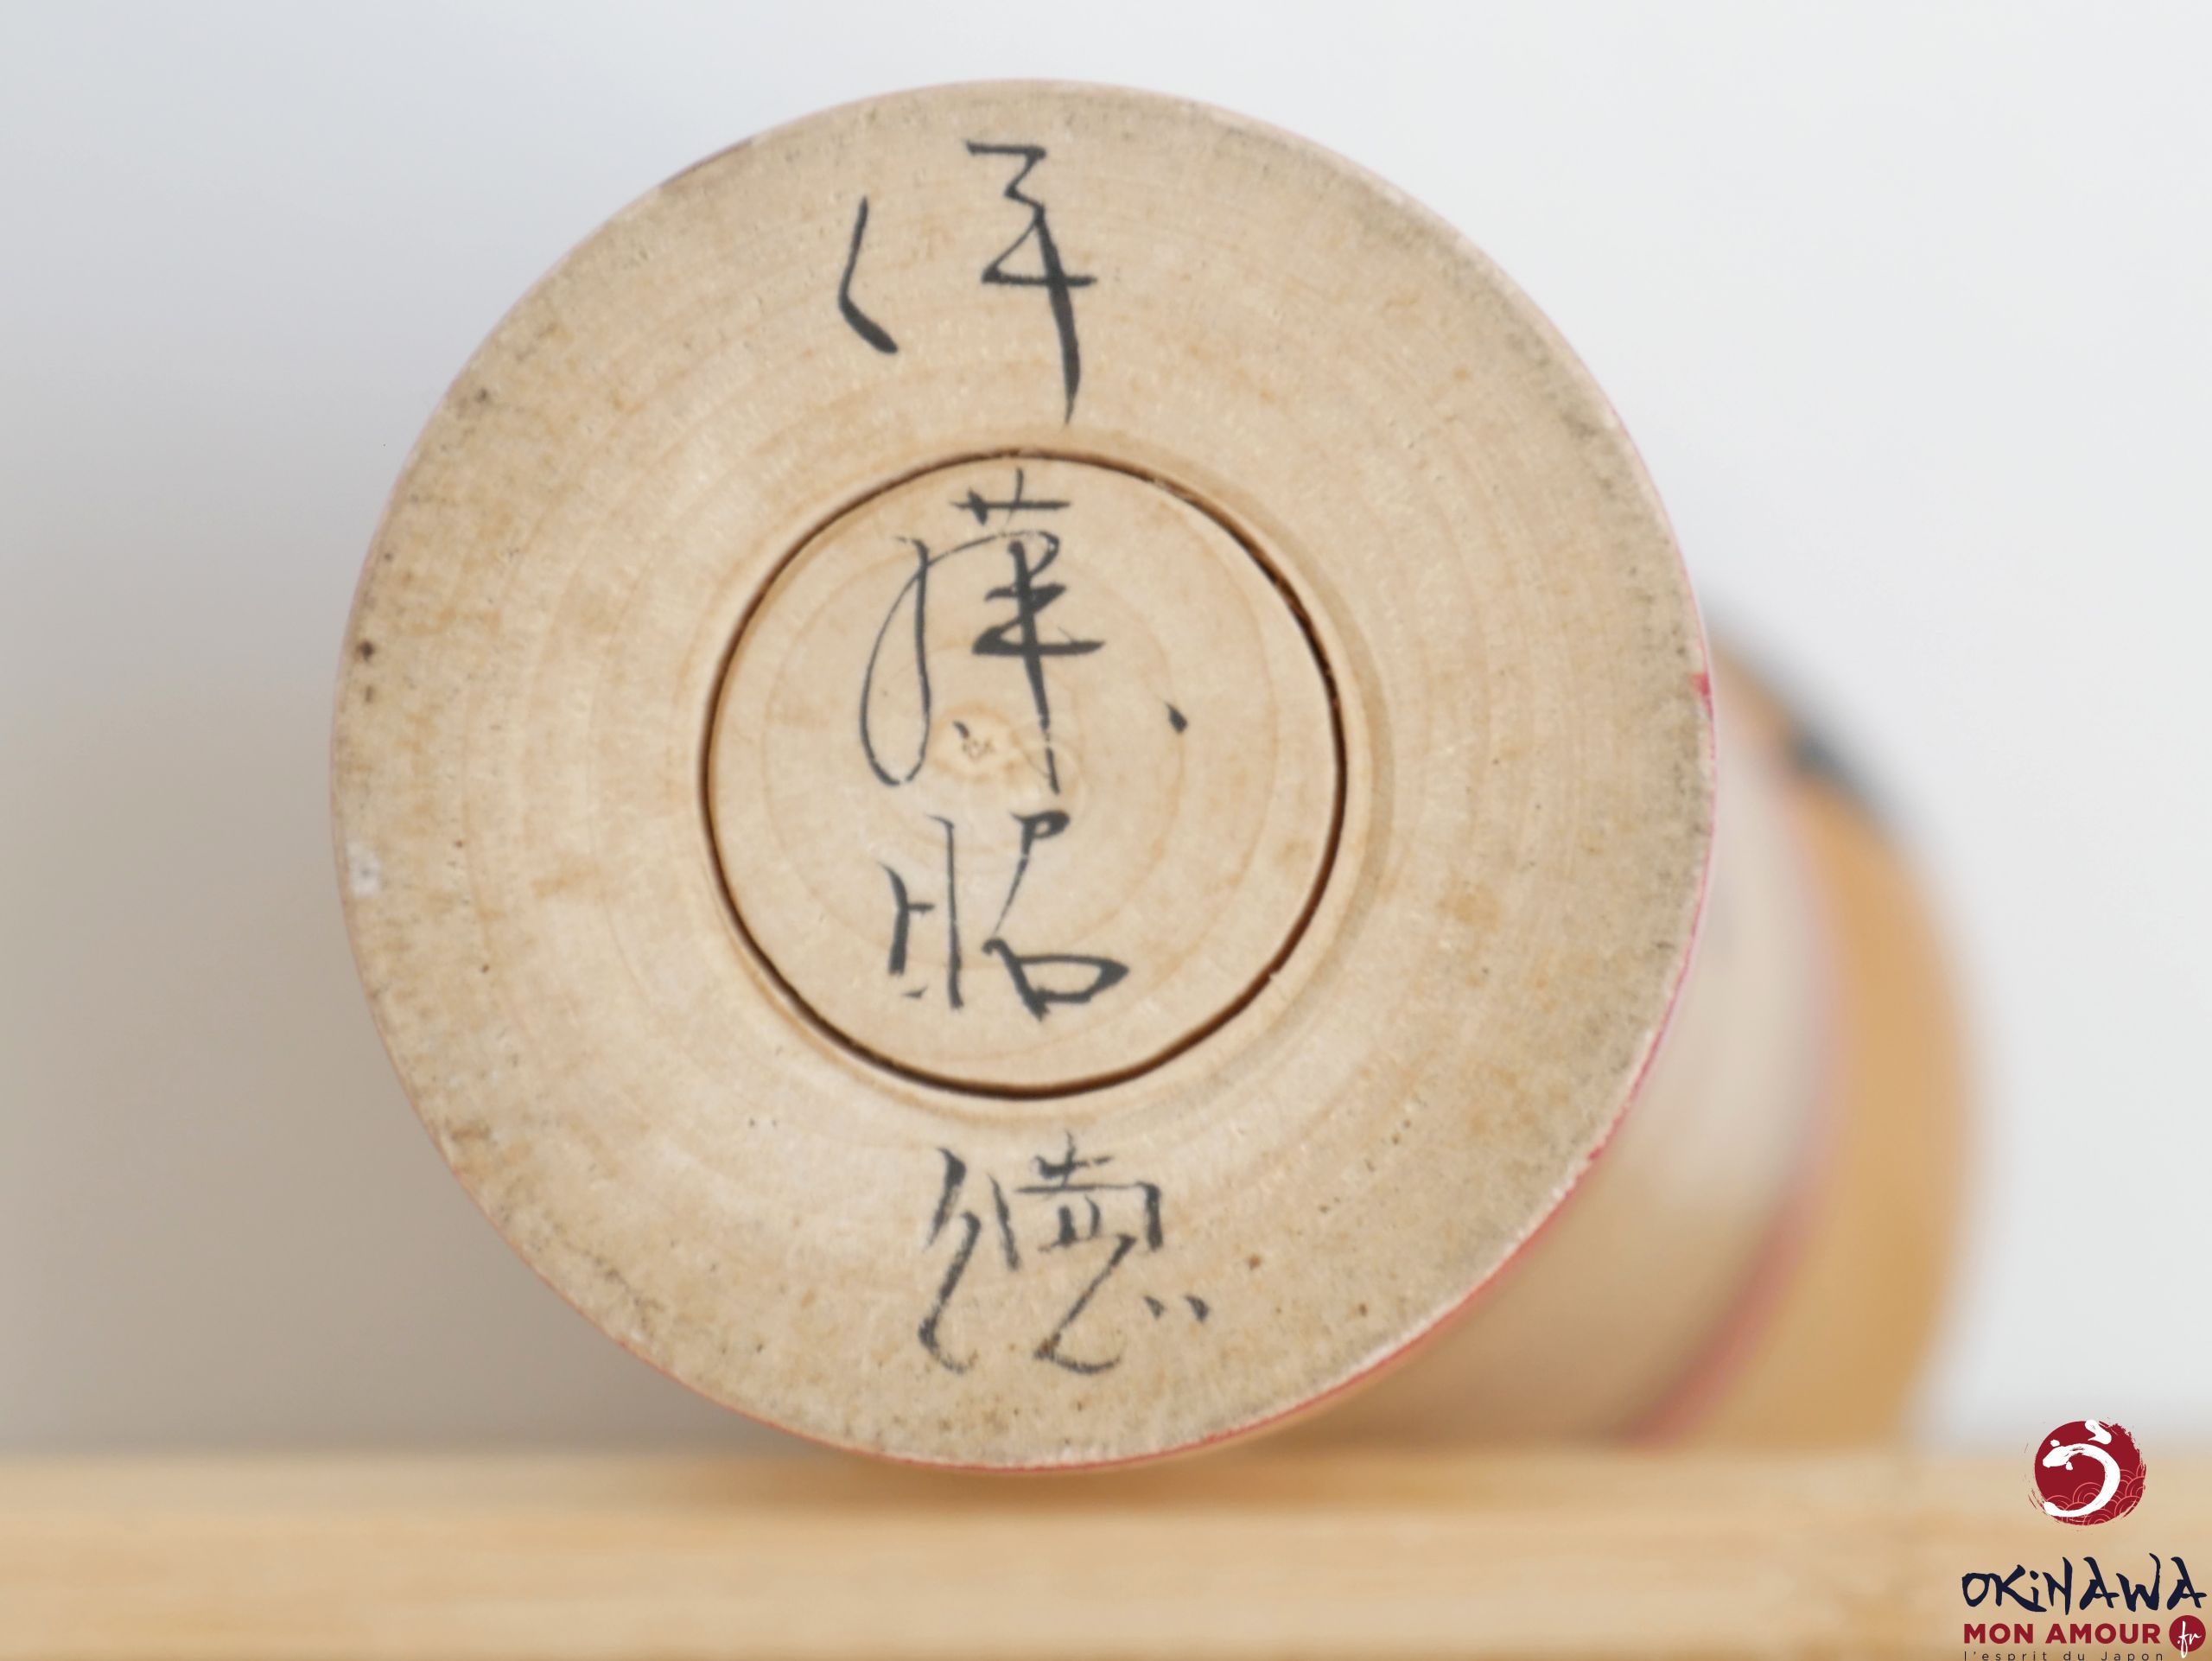 伊藤昭徳
OKiNAWA
MON AMOUR .fr
l'esprit du Japon